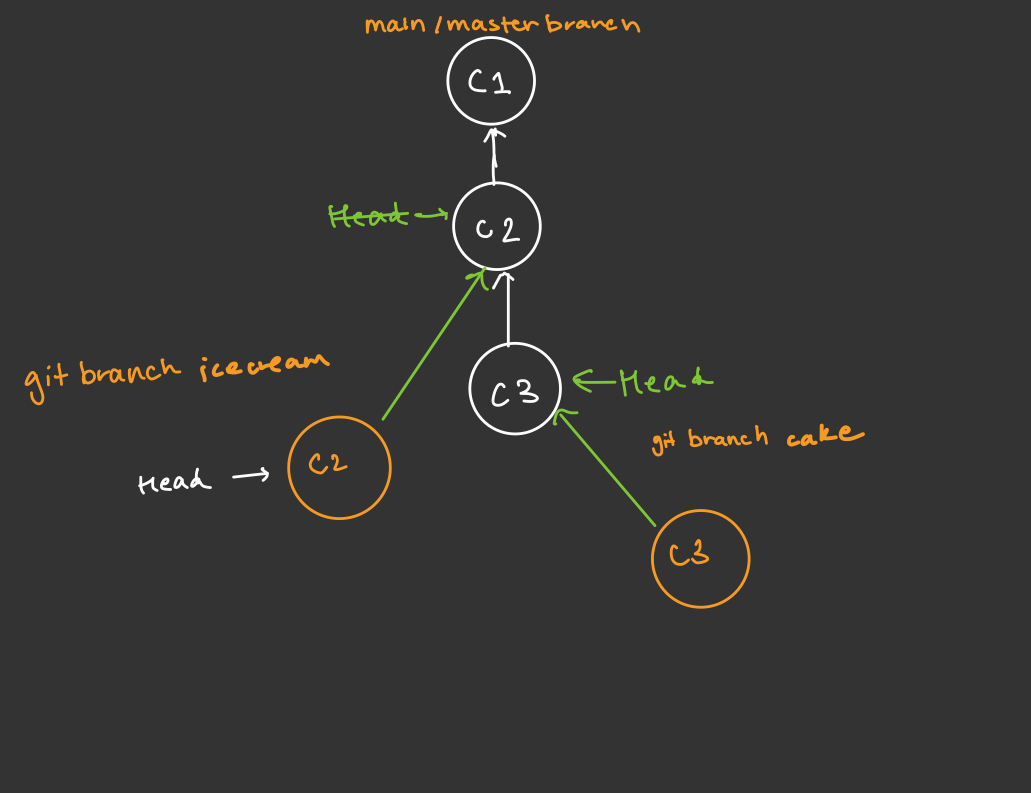 main/master branch
C1
Head
C2
git branch icecream
C3
Head
git branch cake
Head
C2
C3